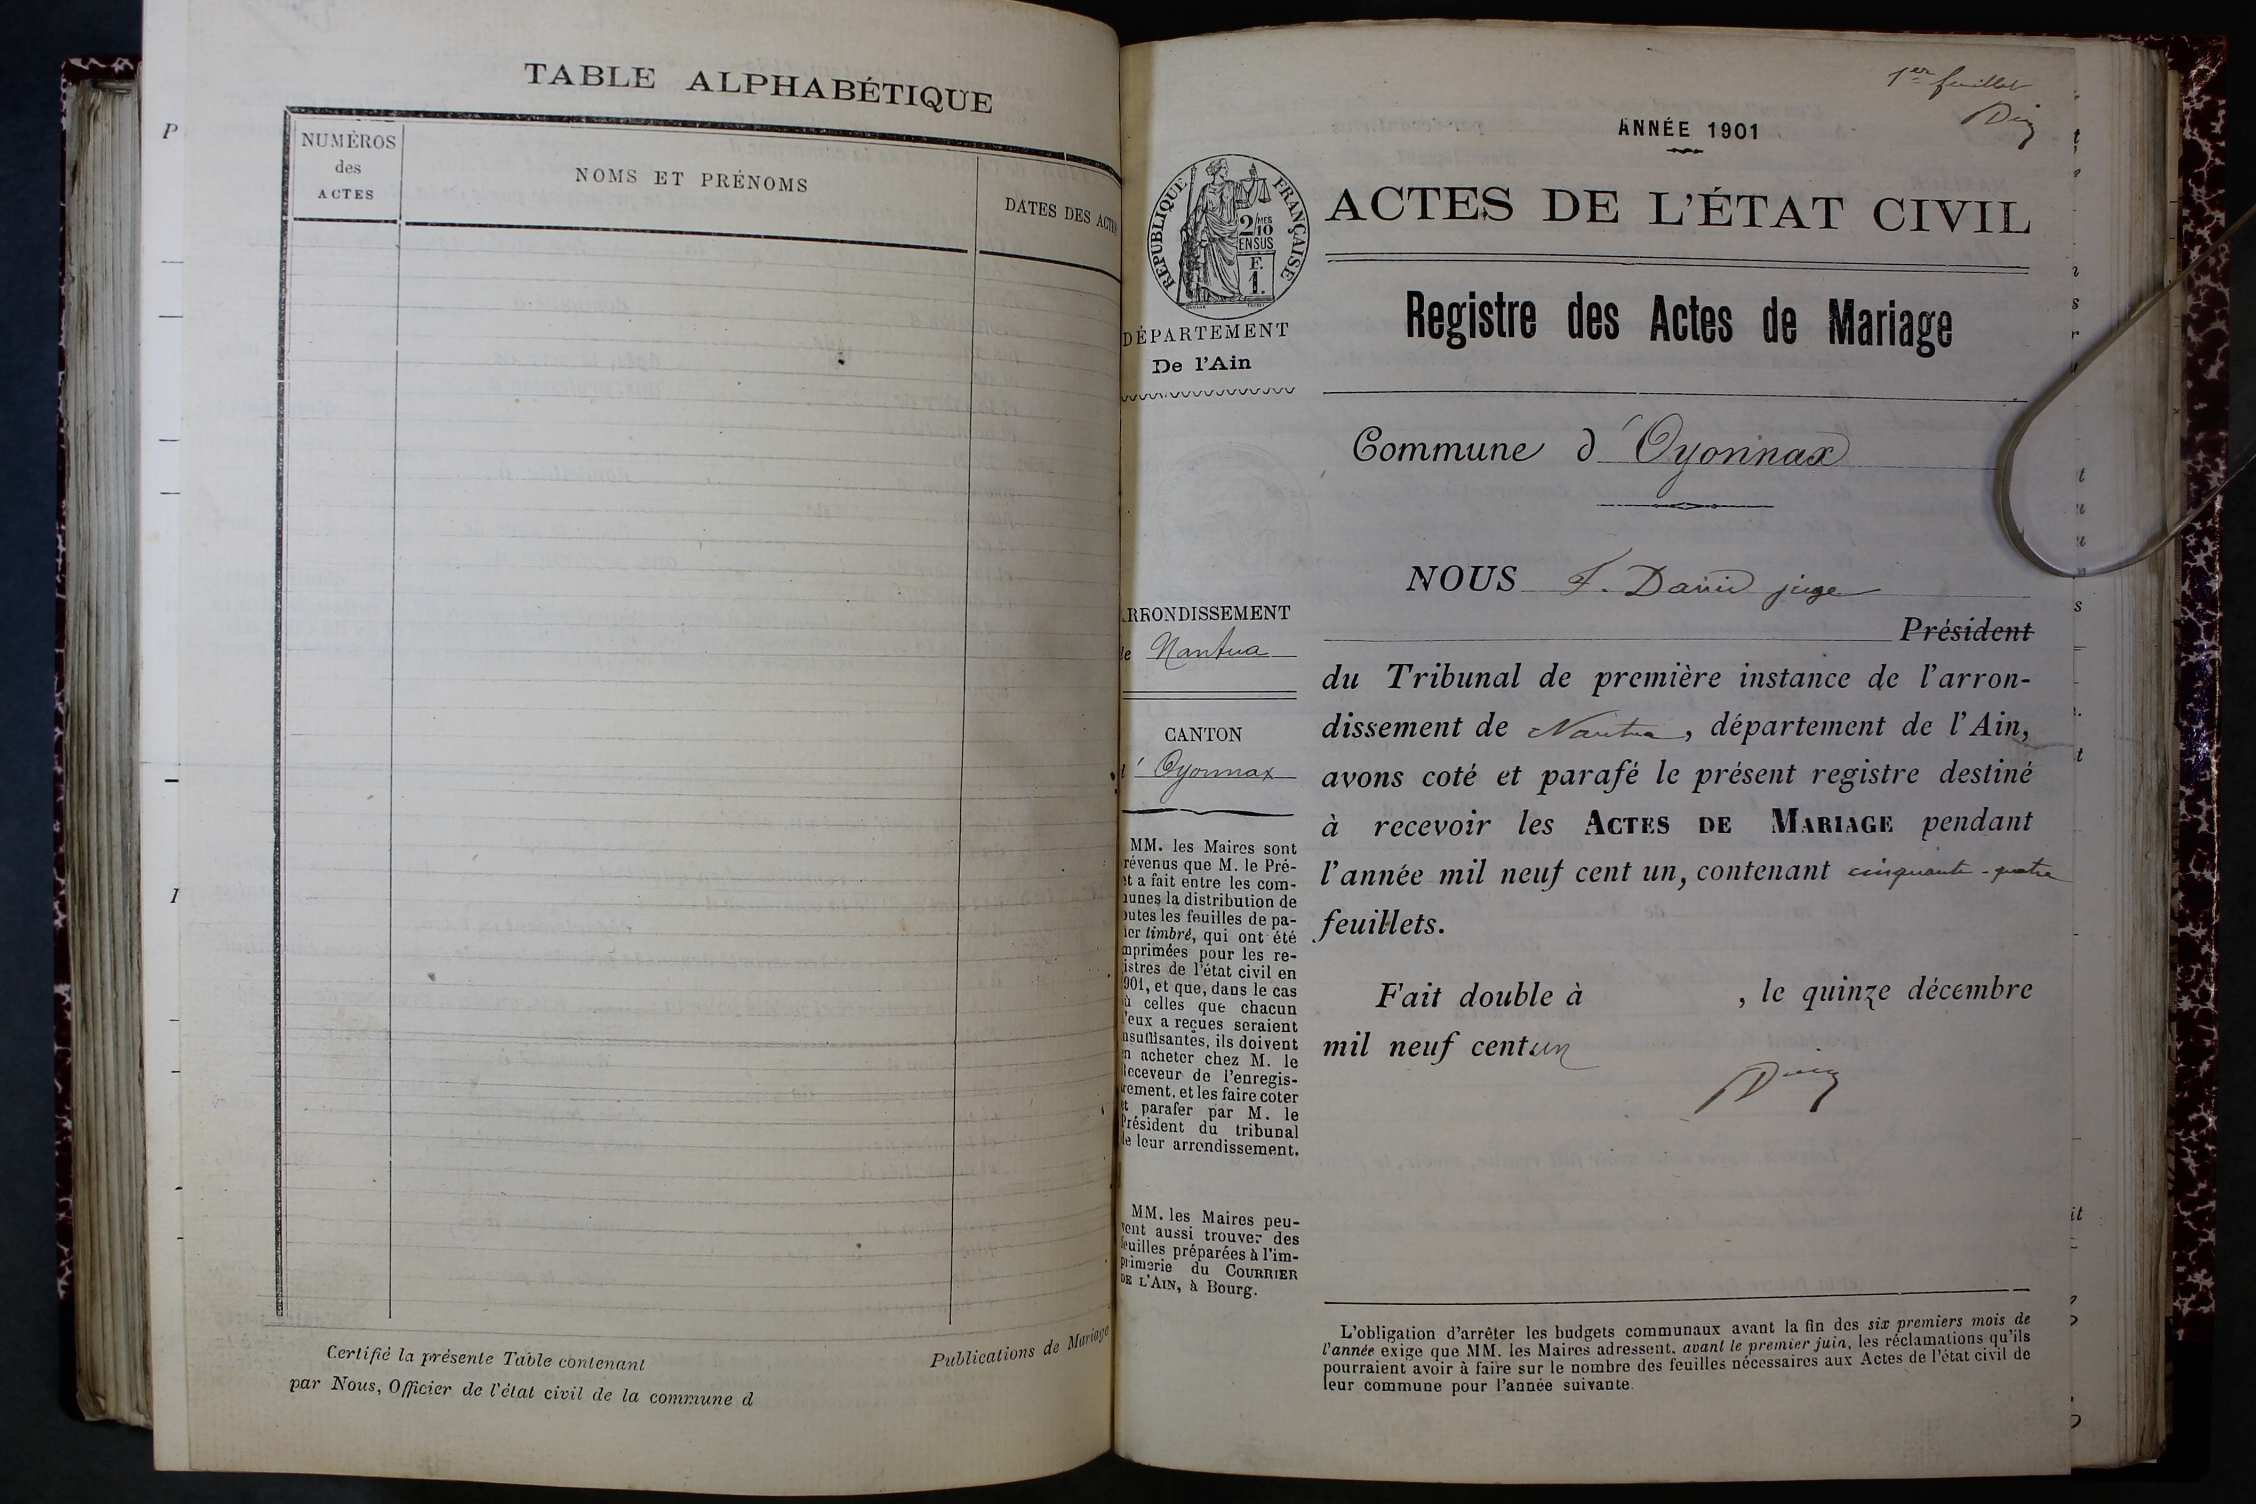 TABLE ALPHABÉTIQUE
NUMÉROS
des
ACTES
NOMS ET PRÉNOMS
DATES DES ACTES
Certifié la présente Table contenant
Publications de Mariage
par Nous, Officier de l'état civil de la commune d
1er feuillet
ANNÉE 1901
RÉPUBLIQUE FRANÇAISE
2/10 MES
EN SUS
F.
1.
ACTES DE L'ÉTAT CIVIL
DÉPARTEMENT
De l'Ain
Registre des Actes de Mariage
Commune d'Oyonnax
NOUS F. David juge
Président
ARRONDISSEMENT
de Nantua
CANTON
d'Oyonnax
du Tribunal de première instance de l'arron-
dissement de Nantua, département de l'Ain,
avons coté et parafé le présent registre destiné
à recevoir les ACTES DE MARIAGE pendant
l'année mil neuf cent un, contenant cinquante-quatre
feuillets.
Fait double à , le quinze décembre
mil neuf cent un
MM. les Maires sont
révenus que M. le Pré-
et a fait entre les com-
munes la distribution de
outes les feuilles de pa-
ier timbré, qui ont été
mprimées pour les re-
istres de l'état civil en
901, et que, dans le cas
ù celles que chacun
d'eux a reçues seraient
nsuffisantes, ils doivent
n acheter chez M. le
Receveur de l'enregis-
rement, et les faire coter
et parafer par M. le
Président du tribunal
de leur arrondissement.
MM. les Maires peu-
vent aussi trouver des
feuilles préparées à l'im-
primerie du COURRIER
DE L'AIN, à Bourg.
L'obligation d'arrêter les budgets communaux avant la fin des six premiers mois de
l'année exige que MM. les Maires adressent, avant le premier juin, les réclamations qu'ils
pourraient avoir à faire sur le nombre des feuilles nécessaires aux Actes de l'état civil de
leur commune pour l'année suivante.